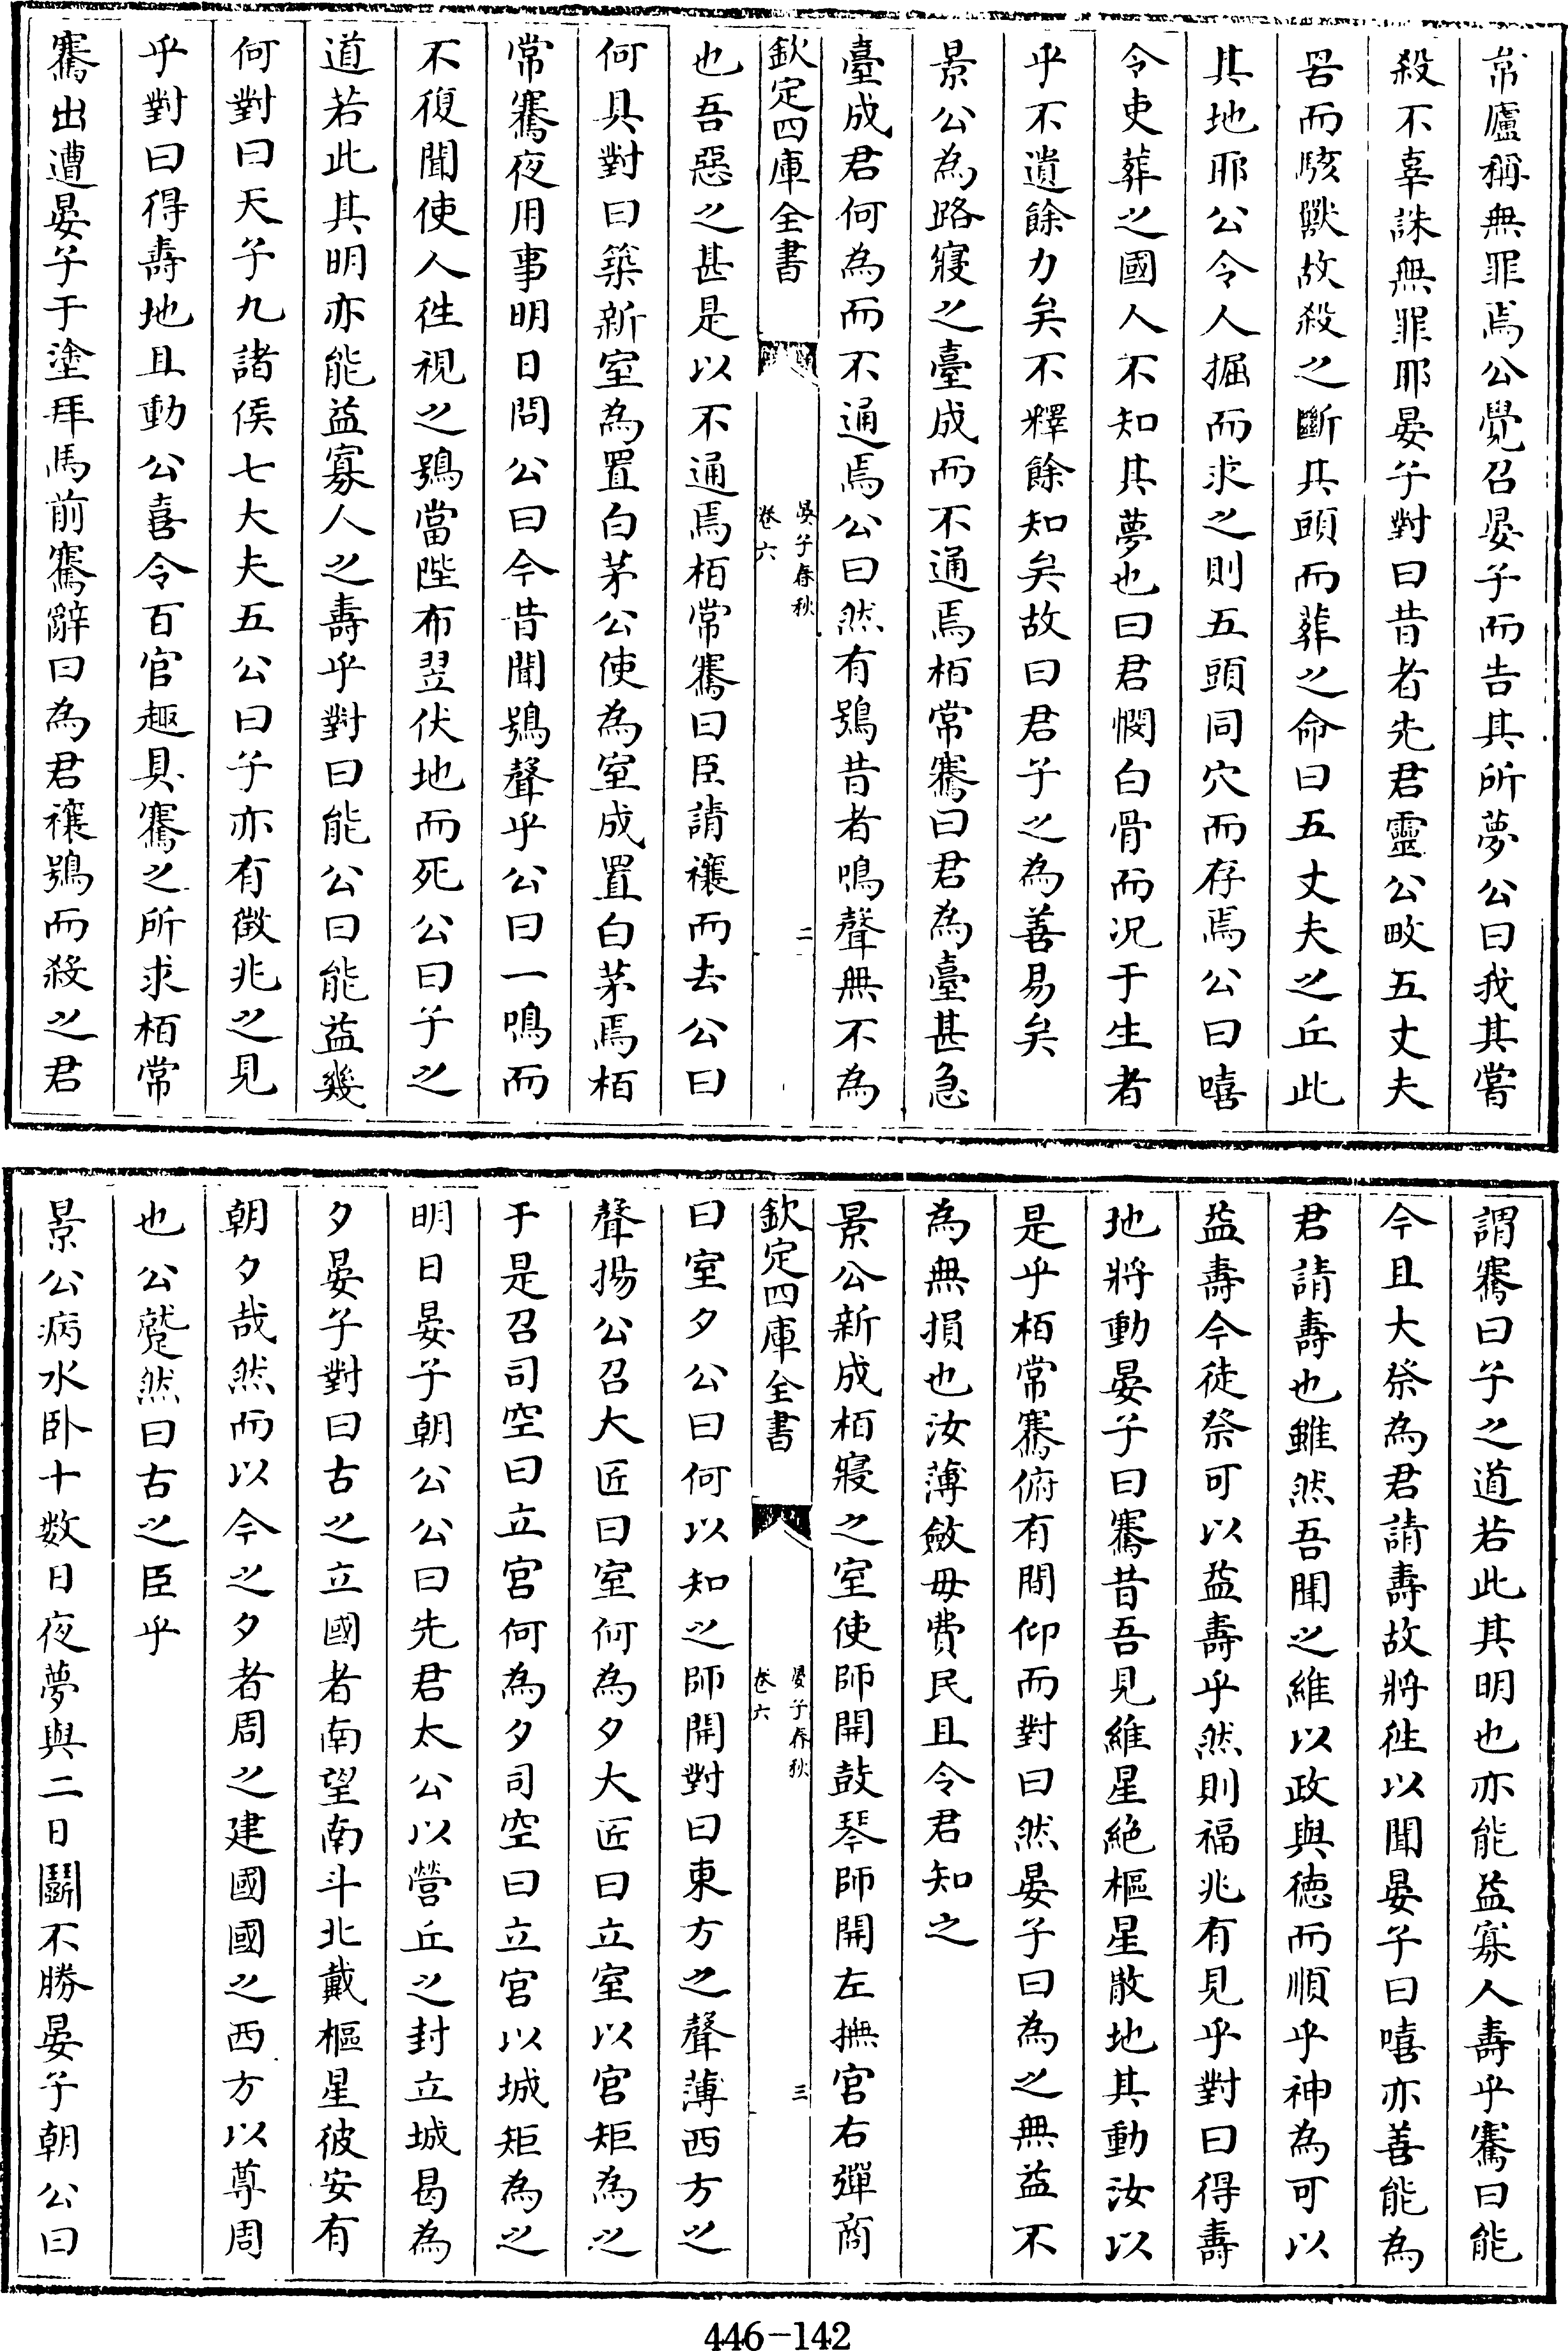 常廬稱無罪焉公覺召晏子而告其所夢公曰我其嘗
殺不辜誅無罪耶晏子對曰昔者先君靈公畋五丈夫
罟而駭獸故殺之斷其頭而葬之命曰五丈夫之丘此
其地耶公令人掘而求之則五頭同穴而存焉公曰嘻
令吏葬之國人不知其夢也曰君憫白骨而况于生者
乎不遺餘力矣不釋餘知矣故曰君子之為善易矣
景公為路寢之臺成而不通焉栢常騫曰君為臺甚急
臺成君何為而不通焉公曰然有鴞昔者鳴聲無不為
欽定四庫全書
晏子春秋
卷六
二
也吾惡之甚是以不通焉栢常騫曰臣請禳而去公曰
何具對曰築新室為置白茅公使為室成置白茅焉栢
常騫夜用事明日問公曰今昔聞鴞聲乎公曰一鳴而
不復聞使人徃視之鴞當陛布翌伏地而死公曰子之
道若此其明亦能益寡人之壽乎對曰能公曰能益幾
何對曰天子九諸侯七大夫五公曰子亦有徴兆之見
乎對曰得壽地且動公喜令百官趣具騫之所求栢常
騫出遭晏子于塗拜馬前騫辭曰為君禳鴞而殺之君
謂騫曰子之道若此其明也亦能益寡人壽乎騫曰能
今且大祭為君請壽故將徃以聞晏子曰嘻亦善能為
君請壽也雖然吾聞之維以政與徳而順乎神為可以
益壽今徒祭可以益壽乎然則福兆有見乎對曰得壽
地將動晏子曰騫昔吾見維星絶樞星散地其動汝以
是乎栢常騫俯有間仰而對曰然晏子曰為之無益不
為無損也汝薄斂毋費民且令君知之
景公新成栢寢之室使師開鼓琴師開左撫宮右彈商
欽定四庫全書
晏子春秋
卷六
三
曰室夕公曰何以知之師開對曰東方之聲薄西方之
聲揚公召大匠曰室何為夕大匠曰立室以宮矩為之
于是召司空曰立宮何為夕司空曰立宮以城矩為之
明日晏子朝公公曰先君太公以營丘之封立城曷為
夕晏子對曰古之立國者南望南斗北戴樞星彼安有
朝夕哉然而以今之夕者周之建國國之西方以尊周
也公蹵然曰古之臣乎
景公病水卧十數日夜夢與二日鬬不勝晏子朝公曰
446-142